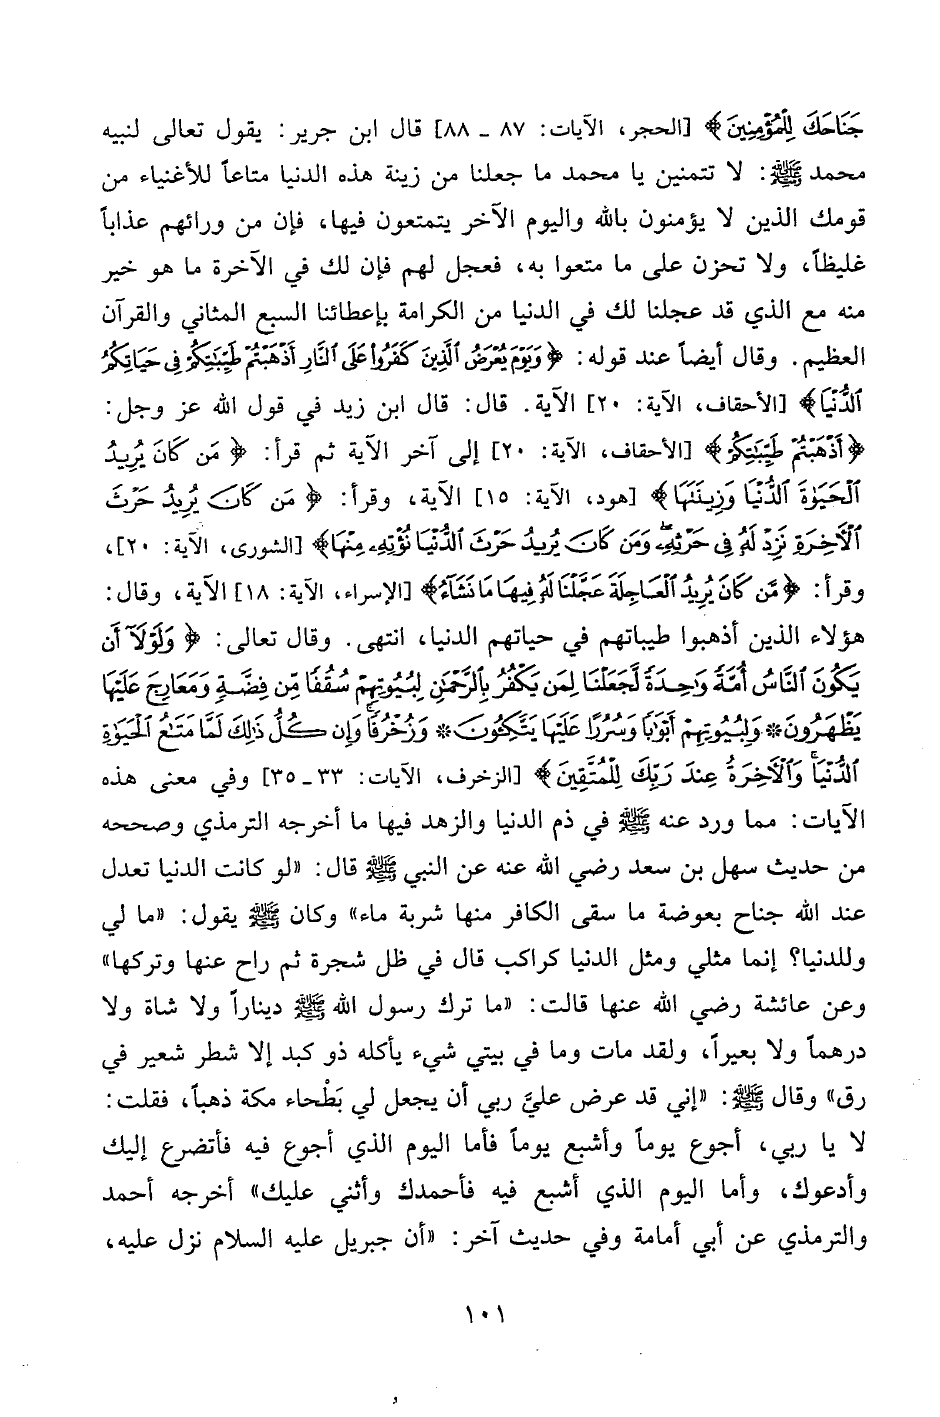 جَنَاحَكَ لِلْمُؤْمِنِينَ﴾ [الحجر، الآيات: ٨٧ ـ ٨٨] قال ابن جرير: يقول تعالى لنبيه
محمد ﷺ: لا تتمنين يا محمد ما جعلنا من زينة هذه الدنيا متاعاً للأغنياء من
قومك الذين لا يؤمنون بالله واليوم الآخر يتمتعون فيها، فإن من ورائهم عذاباً
غليظاً، ولا تحزن على ما متعوا به، فعجل لهم فإن لك في الآخرة ما هو خير
منه مع الذي قد عجلنا لك في الدنيا من الكرامة بإعطائنا السبع المثاني والقرآن
العظيم. وقال أيضاً عند قوله: ﴿وَيَوْمَ يُعْرَضُ ٱلَّذِينَ كَفَرُوا۟ عَلَى ٱلنَّارِ أَذْهَبْتُمْ طَيِّبَٰتِكُمْ فِى حَيَاتِكُمُ
ٱلدُّنْيَا﴾ [الأحقاف، الآية: ٢٠] الآية. قال: قال ابن زيد في قول الله عز وجل:
﴿أَذْهَبْتُمْ طَيِّبَٰتِكُمْ﴾ [الأحقاف، الآية: ٢٠] إلى آخر الآية ثم قرأ: ﴿مَن كَانَ يُرِيدُ
ٱلْحَيَوٰةَ ٱلدُّنْيَا وَزِينَتَهَا﴾ [هود، الآية: ١٥] الآية، وقرأ: ﴿مَن كَانَ يُرِيدُ حَرْثَ
ٱلْآخِرَةِ نَزِدْ لَهُۥ فِى حَرْثِهِۦ وَمَن كَانَ يُرِيدُ حَرْثَ ٱلدُّنْيَا نُؤْتِهِۦ مِنْهَا﴾ [الشورى، الآية: ٢٠]،
وقرأ: ﴿مَّن كَانَ يُرِيدُ ٱلْعَاجِلَةَ عَجَّلْنَا لَهُۥ فِيهَا مَا نَشَآءُ﴾ [الإسراء، الآية: ١٨] الآية، وقال:
هؤلاء الذين أذهبوا طيباتهم في حياتهم الدنيا، انتهى. وقال تعالى: ﴿وَلَوْلَآ أَن
يَكُونَ ٱلنَّاسُ أُمَّةً وَٰحِدَةً لَّجَعَلْنَا لِمَن يَكْفُرُ بِٱلرَّحْمَٰنِ لِبُيُوتِهِمْ سُقُفًا مِّن فِضَّةٍ وَمَعَارِجَ عَلَيْهَا
يَظْهَرُونَ* وَلِبُيُوتِهِمْ أَبْوَٰبًا وَسُرُرًا عَلَيْهَا يَتَّكِئُونَ* وَزُخْرُفًا ۚ وَإِن كُلُّ ذَٰلِكَ لَمَّا مَتَٰعُ ٱلْحَيَوٰةِ
ٱلدُّنْيَا ۚ وَٱلْآخِرَةُ عِندَ رَبِّكَ لِلْمُتَّقِينَ﴾ [الزخرف، الآيات: ٣٣ ـ ٣٥] وفي معنى هذه
الآيات: مما ورد عنه ﷺ في ذم الدنيا والزهد فيها ما أخرجه الترمذي وصححه
من حديث سهل بن سعد رضي الله عنه عن النبي ﷺ قال: «لو كانت الدنيا تعدل
عند الله جناح بعوضة ما سقى الكافر منها شربة ماء» وكان ﷺ يقول: «ما لي
وللدنيا؟ إنما مثلي ومثل الدنيا كراكب قال في ظل شجرة ثم راح عنها وتركها»
وعن عائشة رضي الله عنها قالت: «ما ترك رسول الله ﷺ ديناراً ولا شاة ولا
درهماً ولا بعيراً، ولقد مات وما في بيتي شيء يأكله ذو كبد إلا شطر شعير في
رق» وقال ﷺ: «إني قد عرض عليَّ ربي أن يجعل لي بَطْحاء مكة ذهباً، فقلت:
لا يا ربي، أجوع يوماً وأشبع يوماً فأما اليوم الذي أجوع فيه فأتضرع إليك
وأدعوك، وأما اليوم الذي أشبع فيه فأحمدك وأثني عليك» أخرجه أحمد
والترمذي عن أبي أمامة وفي حديث آخر: «أن جبريل عليه السلام نزل عليه،
١٠١